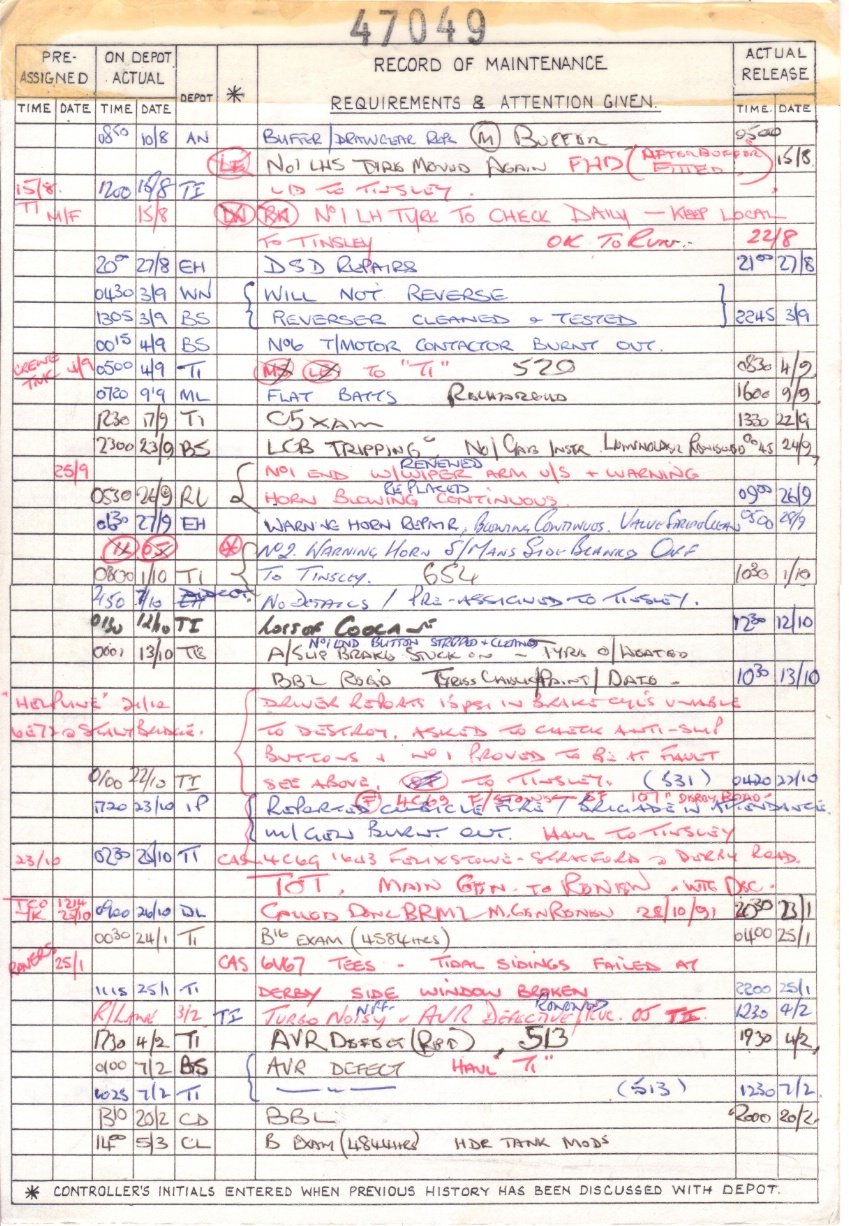 47049
PRE-ASSIGNED ON DEPOT ACTUAL DEPOT * RECORD OF MAINTENANCE REQUIREMENTS & ATTENTION GIVEN. ACTUAL RELEASE
TIME DATE TIME DATE TIME DATE
0850 10/8 AN BUFFER/DRAWGEAR REPS (M) BUFFER 0500
No1 LHS TYRE MOVED AGAIN FHD (AFTER BUFFER FITTED) 15/8
15/8. 1200 15/8 TI L/D TO TINSLEY.
TI M/F 15/8 No1 LH TYRE TO CHECK DAILY — KEEP LOCAL
TO TINSLEY OK TO RUN. 22/8
2000 27/8 EH DSD REPAIRS 2100 27/8
0430 3/9 WN WILL NOT REVERSE
1305 3/9 BS REVERSER CLEANED & TESTED 2245 3/9
0015 4/9 BS No6 T/MOTOR CONTACTOR BURNT OUT.
CREWE TMK 4/9 0500 4/9 TI TO "TI" 520 0830 4/9
0720 9/9 ML FLAT BATTS RECHARGED 1600 9/9
1230 17/9 TI C EXAM 1330 22/9
2300 23/9 BS LCB TRIPPING No1 CAB INSTR. RENEWED 0045 24/9
25/9 No1 END W/WIPER ARM U/S + WARNING
RENEWED
0530 26/9 RL HORN BLOWING CONTINUOUS. 0900 26/9
REPLACED
0130 27/9 EH WARNING HORN REPAIR, BLOWING CONTINUOS. VALVE STRIP CLEAN 0500 28/9
No2 WARNING HORN S/MANS SIDE BLANKED OFF
0800 1/10 TI TO TINSLEY. 654 1030 1/10
1450 7/10 EH NO DETAILS / PRE-ASSIGNED TO TINSLEY.
0130 12/10 TI LOSS OF COOLANT 1230 12/10
No1 END BUTTON STRIPPED & CLEANED
0001 13/10 TE A/SLIP BRAKE STUCK ON - TYRE O/HEATED
BBL REQ'D TYRES CHECK/PAINT/DATE - 1030 13/10
"HELPLINE" 21/10 DRIVER REPORTS 15 PSI IN BRAKE CYL'S UNABLE
6E72 @ STALYBRIDGE. TO DESTROY, ASKED TO CHECK ANTI-SLIP
BUTTONS & No1 PROVED TO BE AT FAULT
0100 22/10 TI SEE ABOVE. TO TINSLEY. (531) 0420 22/10
(F) 4C69 F/STOWE - SF 107" DERBY ROAD.
1720 23/10 IP REPORTED CUBICLE FIRE / BRIGADE IN ATTENDANCE.
M/GEN BURNT OUT. HAUL TO TINSLEY
23/10 0230 25/10 TI CAS 4C69 1643 FELIXSTOWE - STRATFORD @ DERBY ROAD.
TOT, MAIN GEN. TO RENEW. WTG DBC.
TCO TK 1214 25/10 0900 26/10 DL CALLED DONC BRML M. GEN RENEW 28/10/91 2030 23/1
0030 24/1 TI B16 EXAM (4584HRS) 0400 25/1
25/1 CAS 6V67 TEES - TIDAL SIDINGS FAILED AT
1115 25/1 TI DERBY SIDE WINDOW BROKEN 2200 25/1
NFF. RENEWED
R/LANE 3/2 TI TURBO NOISY & AVR DEFECTIVE/RUC. 05 TI. 1230 4/2
1730 4/2 TI AVR DEFECT (RPD) 513 1930 4/2
0100 7/2 BS AVR DEFECT HAUL "TI"
1025 7/2 TI — " — (513) 1230 7/2.
1310 20/2 CD BBL 2000 20/2
1400 5/3 CL B EXAM (4844HRS) HDR TANK MODS
* CONTROLLER'S INITIALS ENTERED WHEN PREVIOUS HISTORY HAS BEEN DISCUSSED WITH DEPOT.